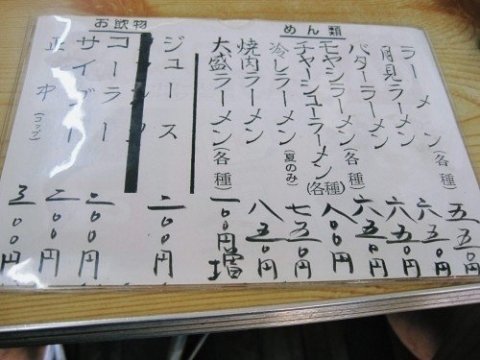 めん類
ラーメン(各種) 五五〇円
月見ラーメン 六五〇円
バターラーメン 六五〇円
モヤシラーメン(各種) 六五〇円
チャーシューラーメン(各種) 八〇〇円
冷しラーメン(夏のみ) 七五〇円
焼肉ラーメン 八五〇円
大盛ラーメン(各種) 一〇〇円増
お飲物
ジュース 二〇〇円
コーラー 二〇〇円
サイダー 二〇〇円
正中(コップ) 三〇〇円